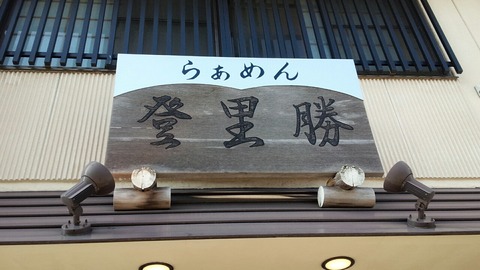 らぁめん
登里勝